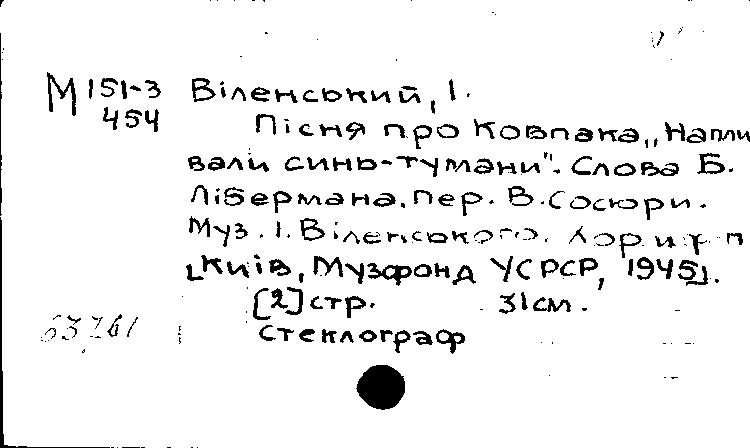 М 151-3 Віленський, І.
454 Пісня про Ковпака „Напли
вали синь-тумани". Слова Б.
Лібермана. Пер. В. Сосюри.
Муз. І. Віленського.
[Київ, Музфонд УСРСР, 1945].
[2] стр. 31 см.
63761
Стеклограф